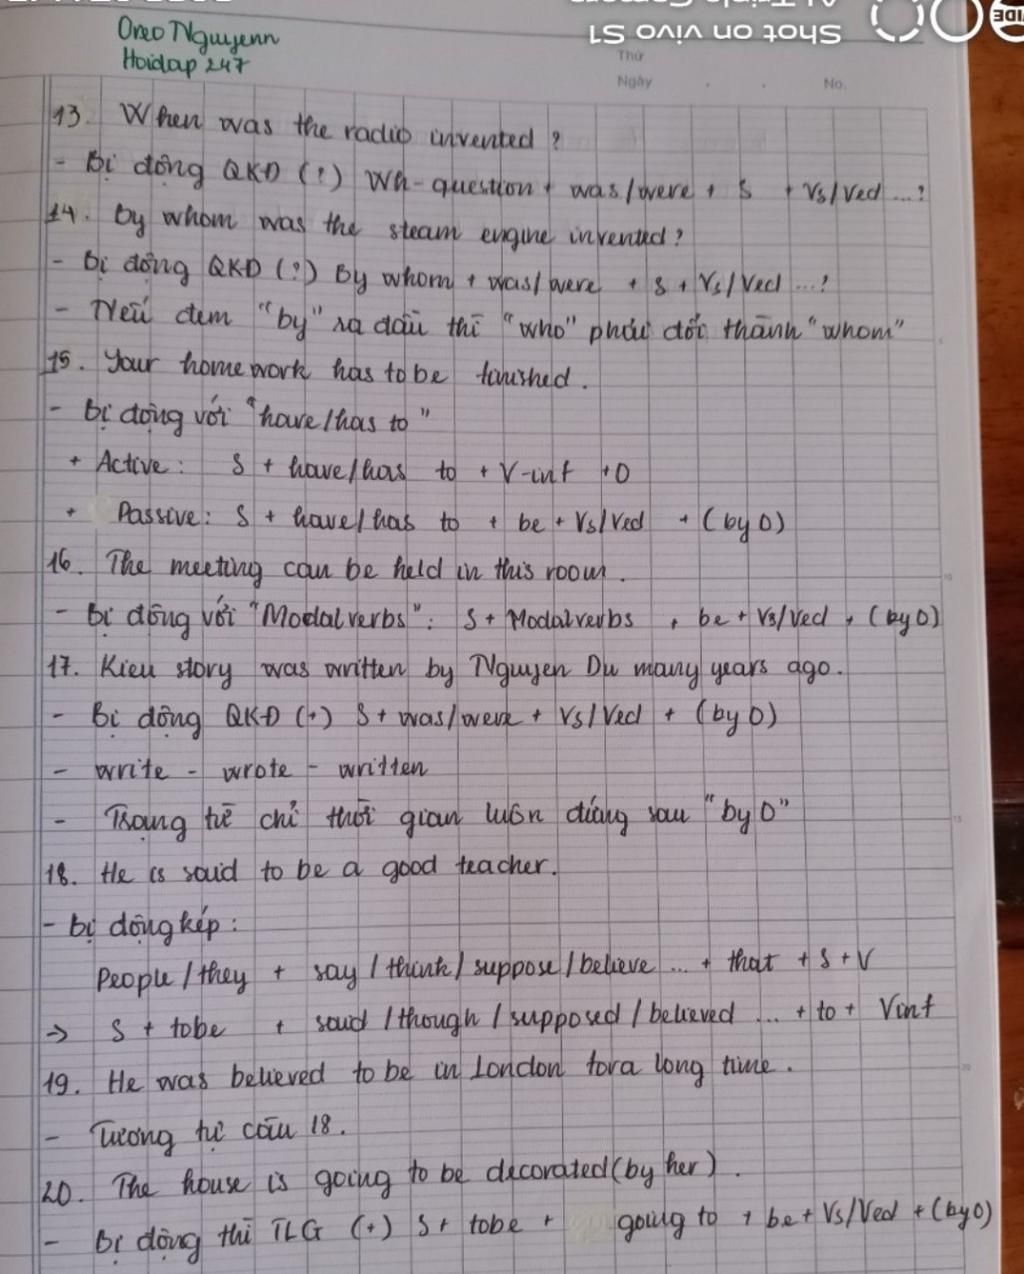 Oreo Nguyenn
Hoidap 247
Shot on vivo S1
AI Triple Camera
Thứ
Ngày
No.
13. When was the radio invented ?
- Bị động QKĐ (?) Wh-question + was/were + S + V3/Ved ...?
14. By whom was the steam engine invented?
- Bị động QKĐ (?) By whom + was/were + S + V3/Ved ...?
- Nếu đem "by" ra đầu thì "who" phải đổi thành "whom"
15. Your homework has to be finished.
- Bị động với "have/has to"
+ Active: S + have/has to + V-inf + O
+ Passive: S + have/has to + be + V3/Ved + (by O)
16. The meeting can be held in this room.
- Bị động với "Modal verbs": S + Modal verbs + be + V3/Ved + (by O)
17. Kieu story was written by Nguyen Du many years ago.
- Bị động QKĐ (+) S + was/were + V3/Ved + (by O)
- write - wrote - written
- Trạng từ chỉ thời gian luôn đứng sau "by O"
18. He is said to be a good teacher.
- Bị động kép:
People / they + say / think / suppose / believe ... + that + S + V
→ S + tobe + said / though / supposed / believed ... + to + Vinf
19. He was believed to be in London for a long time.
- Tương tự câu 18.
20. The house is going to be decorated (by her).
- Bị động thì TLG (+) S + tobe + going to + be + V3/Ved + (by O)